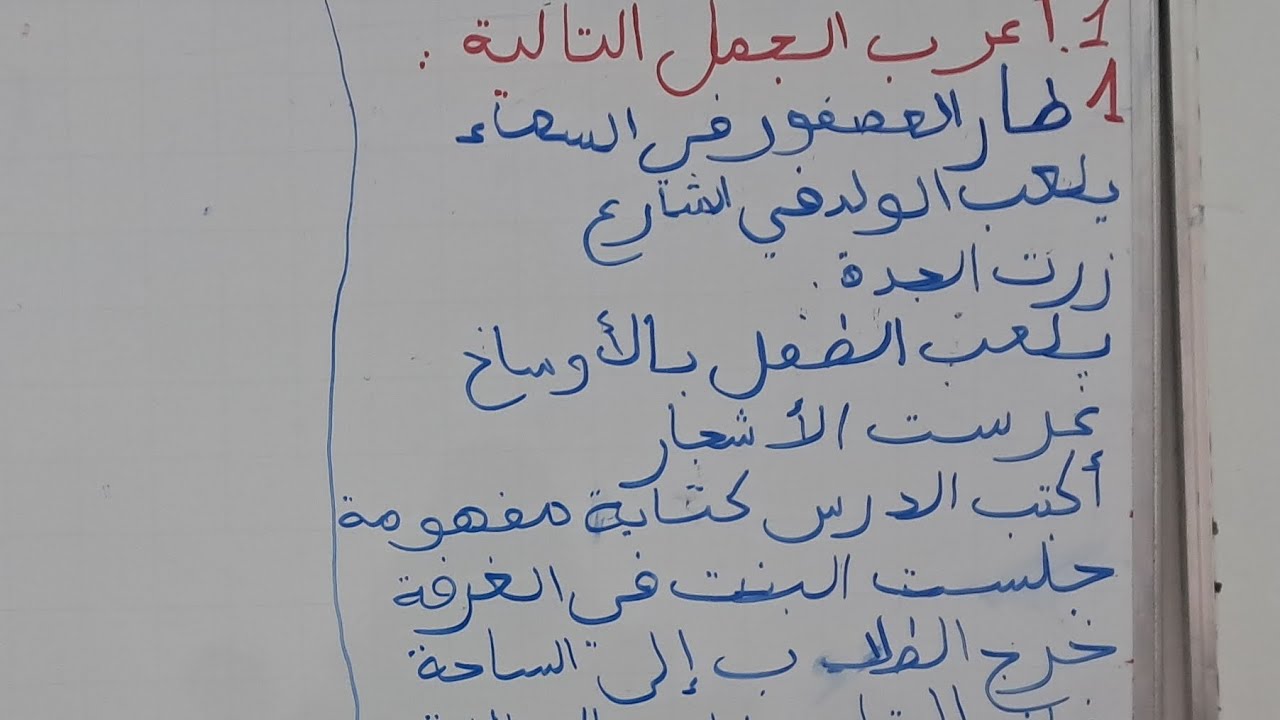 1. أعرب الجمل التالية :
1 طار العصفور في السماء
يلعب الولد في الشارع
زرت الجدة .
يلعب الطفل بالأوساخ
غرست الأشجار
أكتب الدرس كتابة مفهومة
جلست البنت في الغرفة
خرج الطلاب إلى الساحة